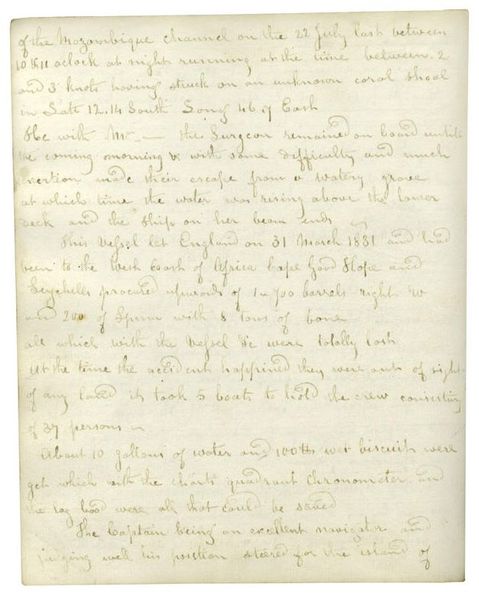 of the Mozambique Channel on the 22 July last between
10 & 11 oclock at night running at the time between 2
and 3 knots having struck on an unknown coral shoal
in Latt 12.14 South Long 46.9 East
He with Mr — the Surgeon remained on board until
the coming morning & with some difficulty and much
exertion made their escape from a watery grave
at which time the water was rising above the lower
deck and the ship on her beam ends
This Vessel left England on 31 March 1831 and had
been to the West Coast of Africa Cape Good Hope and
Seychells procured upwards of barrels right
and 200 of Sperm with 8 tons of bone
all which with the Vessel &c were totally lost
At the time the accident happined they were out of sight
of any land it took 5 boats to hold the crew consisting
of 37 persons in
About 10 gallons of water and 100 wet biscuits were
got which with the charts quadrant chronometer and
the log book were all that could be saved
The Captain being an excellent navigator and
judging well his position steered for the island of